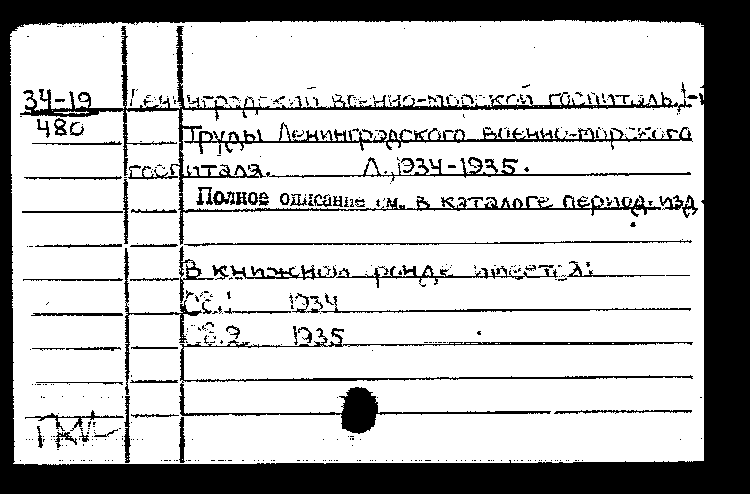 34-19 Ленинградский военно-морской госпиталь, 1-й
480 Труды Ленинградского военно-морского
госпиталя. Л., 1934-1935.
Полное описание см. в каталоге период. изд.
В книжном фонде имеется:
Сб.1 1934
Сб.2. 1935